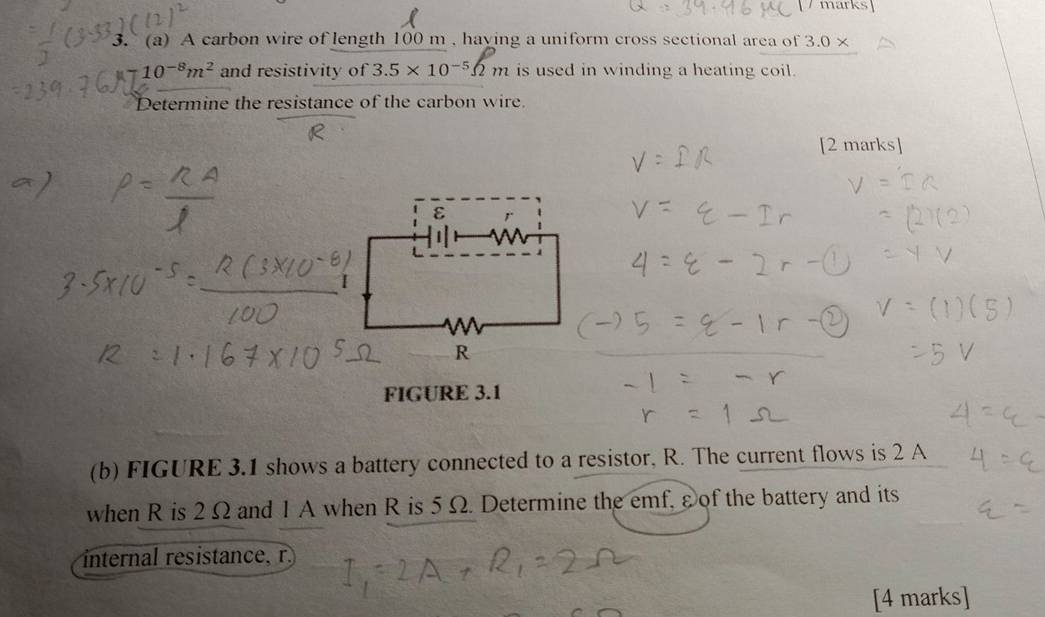 = 1/2 (3.33)(12)²
= 239.76 μJ
Q = 39.96 μC [7 marks]
l
3. (a) A carbon wire of length 100 m , having a uniform cross sectional area of 3.0 × A
10⁻⁸m² and resistivity of 3.5 × 10⁻⁵Ω m is used in winding a heating coil.
ρ
Determine the resistance of the carbon wire.
R
[2 marks]
a) ρ = RA / l
3.5×10⁻⁵ = R(3×10⁻⁸) / 100
R = 1.167×10⁵Ω
ε r
I
R
FIGURE 3.1
V = IR
V = ε - Ir
4 = ε - 2r -①
(-) 5 = ε - 1r -②
-1 = -r
r = 1 Ω
V = IR
= (2)(2)
= 4 V
V = (1)(5)
= 5 V
4 = ε -
4 = ε
ε =
(b) FIGURE 3.1 shows a battery connected to a resistor, R. The current flows is 2 A
when R is 2 Ω and 1 A when R is 5 Ω. Determine the emf, ε of the battery and its
internal resistance, r.
I₁ = 2A , R₁ = 2Ω
[4 marks]